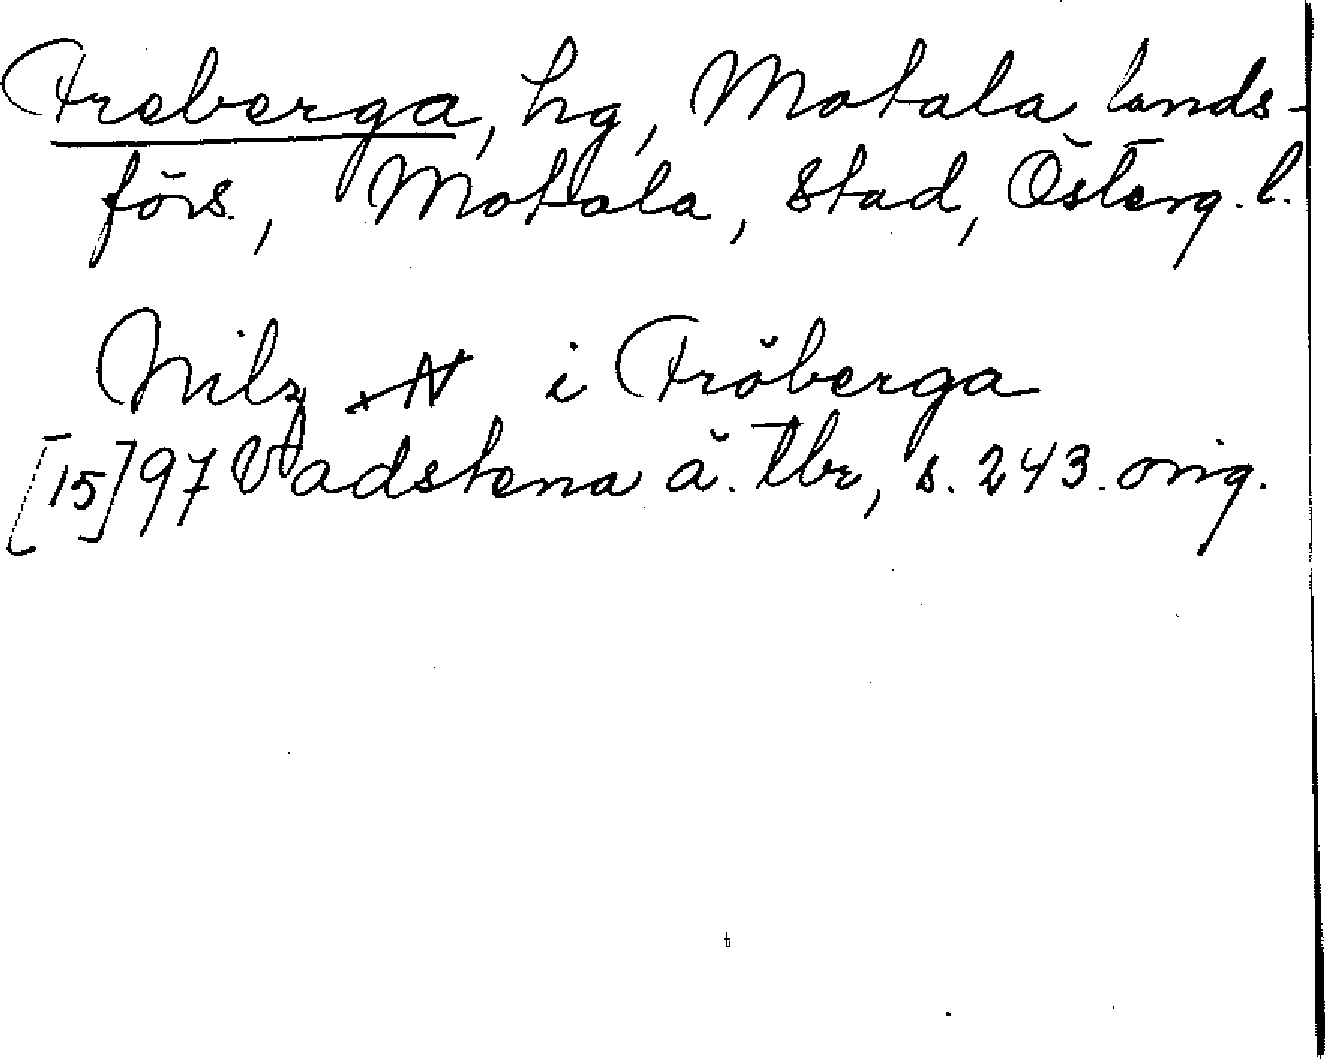 Freberga, hg, Motala lands-
förs., Motala, stad, Österg. l.
Nilz i Fröberga
[15]97 Vadstena ä. tbr, s. 243. orig.